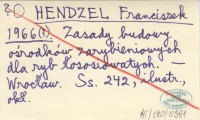 HENDZEL Franciszek
1966(t). Zasady budowy
ośrodków zarybieniowych
dla ryb łososiowatych. —
Wrocław. Ss. 242, ilustr.,